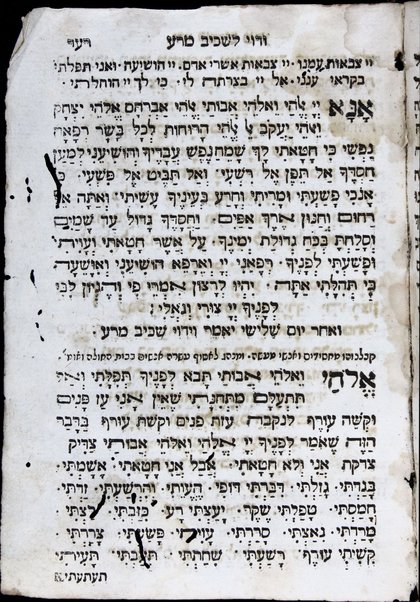 וידוי לשכיב מרע רעד
יי צבאות עמנו · יי צבאות אשרי אדם · יי הושיעה · ואני תפלתי
בקראי ענני · אל יי בצרתה לי · כי לך יי הוחלתי ·
אָנָּא יְיָ אֱלֹהַי וֵאלֹהֵי אֲבוֹתַי אֱלֹהֵי אַבְרָהָם אֱלֹהֵי יִצְחָק
וֵאלֹהֵי יַעֲקֹב אֱלֹהֵי הָרוּחוֹת לְכָל בָּשָׂר רְפָאָה
נַפְשִׁי כִּי חָטָאתִי לָךְ שַׂמַּח נֶפֶשׁ עַבְדֶּךָ וְהוֹשִׁיעֵנִי לְמַעַן
חַסְדֶּךָ אַל תֵּפֶן אֶל רִשְׁעִי · וְאַל תַּבִּיט אֶל פִּשְׁעִי · כִּי
אָנֹכִי פָּשַׁעְתִּי וּמָרִיתִי וְהָרַע בְּעֵינֶיךָ עָשִׂיתִי · וְאַתָּה אֵל
רַחוּם וְחַנּוּן אֶרֶךְ אַפַּיִם · וְחַסְדְּךָ גָדוֹל עַד שָׁמָיִם
וְסָלַחְתָּ בְּכֹחַ גְּדוּלַת יְמִינֶךָ · עַל אֲשֶׁר חָטָאתִי וְעָוִיתִי
וּפָשַׁעְתִּי לְפָנֶיךָ · רְפָאֵנִי יְיָ וְאֵרָפֵא הוֹשִׁיעֵנִי וְאִוָּשֵׁעָה
כִּי תְהִלָּתִי אָתָּה · יִהְיוּ לְרָצוֹן אִמְרֵי פִי וְהֶגְיוֹן לִבִּי
לְפָנֶיךָ יְיָ צוּרִי וְגוֹאֲלִי :
ואחר יום שלישי יאמר וידוי שכיב מרע ·
קבלנוהו מחסידים ואנשי מעשה · ומנהג לאסוף עשרה אנשים בבית החולה
אֱלֹהַי וֵאלֹהֵי אֲבוֹתַי תָּבֹא לְפָנֶיךָ תְּפִלָּתִי וְאַל
תִּתְעַלַּם מִתְּחִנָּתִי שֶׁאֵין אֲנִי עַז פָּנִים
וּקְשֵׁה עוֹרֶף · לנקבה עַזַּת פָּנִים וּקְשַׁת עוֹרֶף בַּדָּבָר
הַזֶּה שֶׁאוֹמַר לְפָנֶיךָ יְיָ אֱלֹהַי וֵאלֹהֵי אֲבוֹתַי צַדִּיק
צדקת אֲנִי וְלֹא חָטָאתִי · אֲבָל אֲנִי חָטָאתִי · אָשַׁמְתִּי ·
בָּגַדְתִּי · גָּזַלְתִּי · דִּבַּרְתִּי דוֹפִי · הֶעֱוֵיתִי · וְהִרְשַׁעְתִּי · זַדְתִּי ·
חָמַסְתִּי · טָפַלְתִּי שֶׁקֶר · יָעַצְתִּי רָע · כִּזַּבְתִּי · לַצְתִּי ·
מָרַדְתִּי · נִאַצְתִּי · סָרַרְתִּי · עָוִיתִי · פָּשַׁעְתִּי · צָרַרְתִּי ·
קִשִּׁיתִי עוֹרֶף · רָשַׁעְתִּי · שִׁחַתִּי · תִּעַבְתִּי · תָּעִיתִי ·
תעתעתי